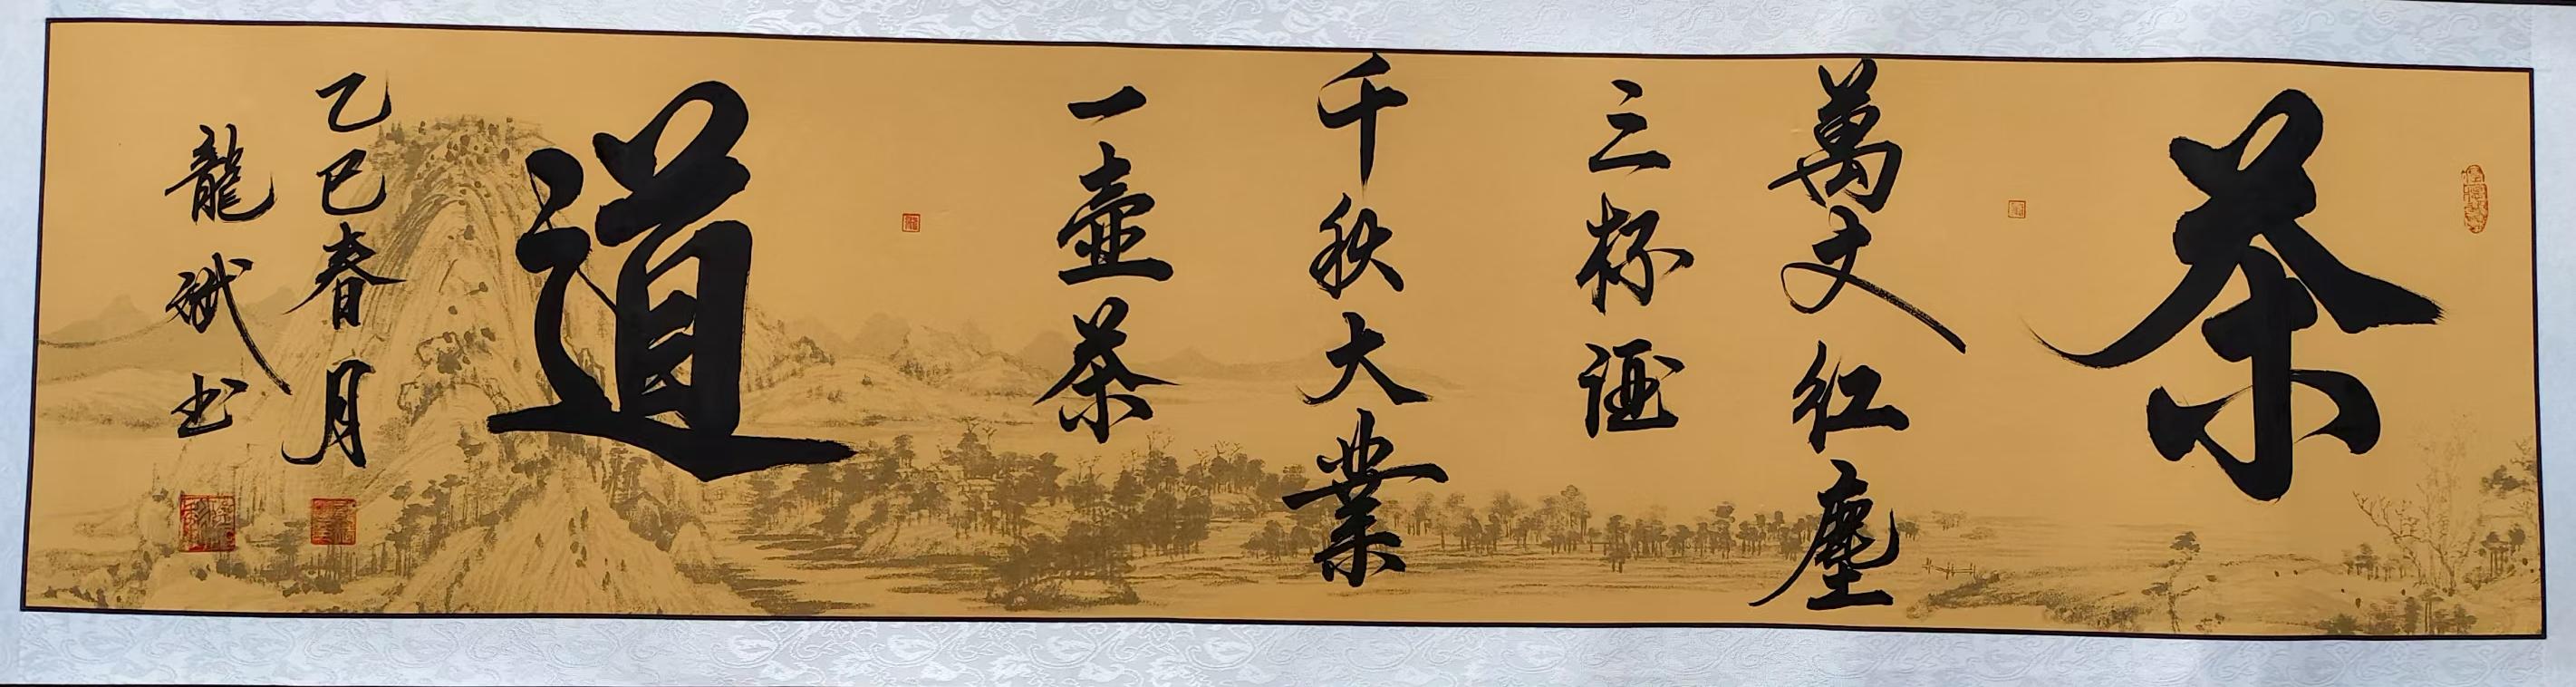 茶
萬丈紅塵
三杯酒
千秋大業
一壺茶
道
乙巳春月
龍斌书